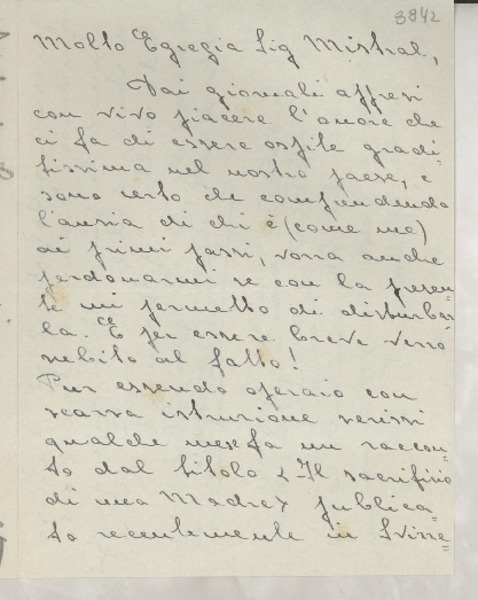 8842
Molto Egregia Sig Mistral,
Dai giornali appresi
con vivo piacere l'onore che
ci fa di essere ospite gradi-
tissima nel nostro paese, e
sono certo che comprendendo
l'ansia di chi è (come me)
ai primi passi, vorrà anche
perdonarmi se con la presen-
te mi permetto di disturbar-
la. E per essere breve verrò
subito al fatto!
Pur essendo operaio con
scarsa istruzione scrissi
qualche mese fa un raccon-
to dal titolo "Il sacrificio
di una Madre" pubblica-
to recentemente in Svizze-